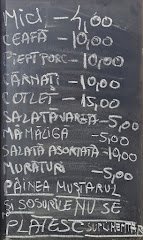 MICI — 4,00
CEAFĂ — 10,00
PIEPT PORC — 10,00
CÂRNAȚI — 10,00
COTLET — 15,00
SALATĂ VARZĂ — 5,00
MĂMĂLIGĂ — 5,00
SALATĂ ASORTATĂ — 10,00
MURĂTURI — 5,00
PÂINEA MUȘTARUL
ȘI SOSURILE NU SE
PLĂTESC SUPLIMENTAR